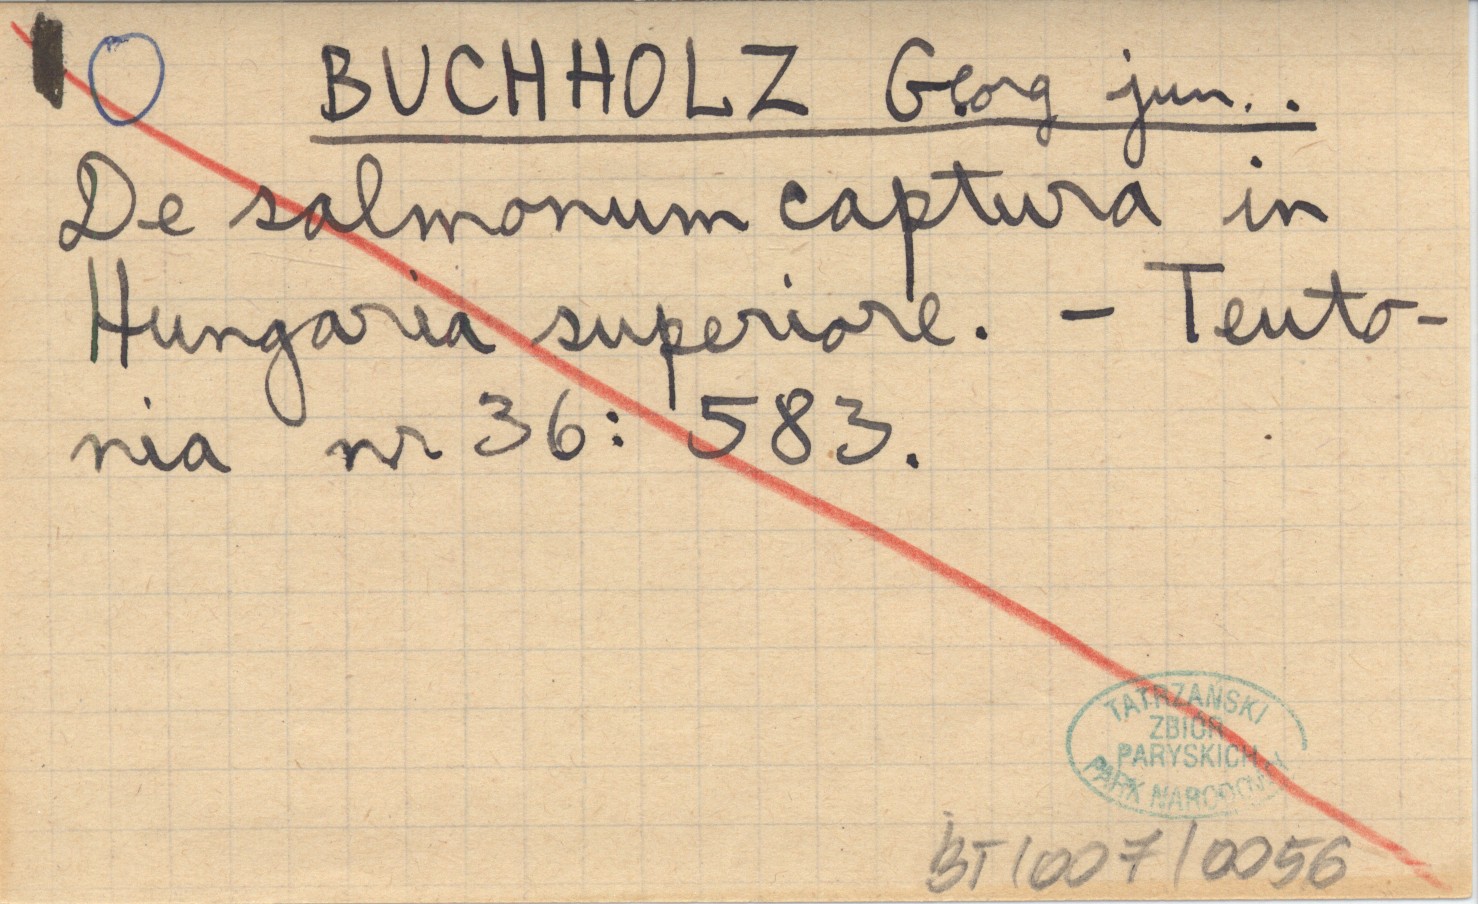 BUCHHOLZ Georg jun..
De salmonum captura in
Hungaria superiore. - Teuto-
nia nr 36: 583.
TATRZAŃSKI
ZBIÓR
PARYSKICH
PARK NARODOWY
BT/007/0056